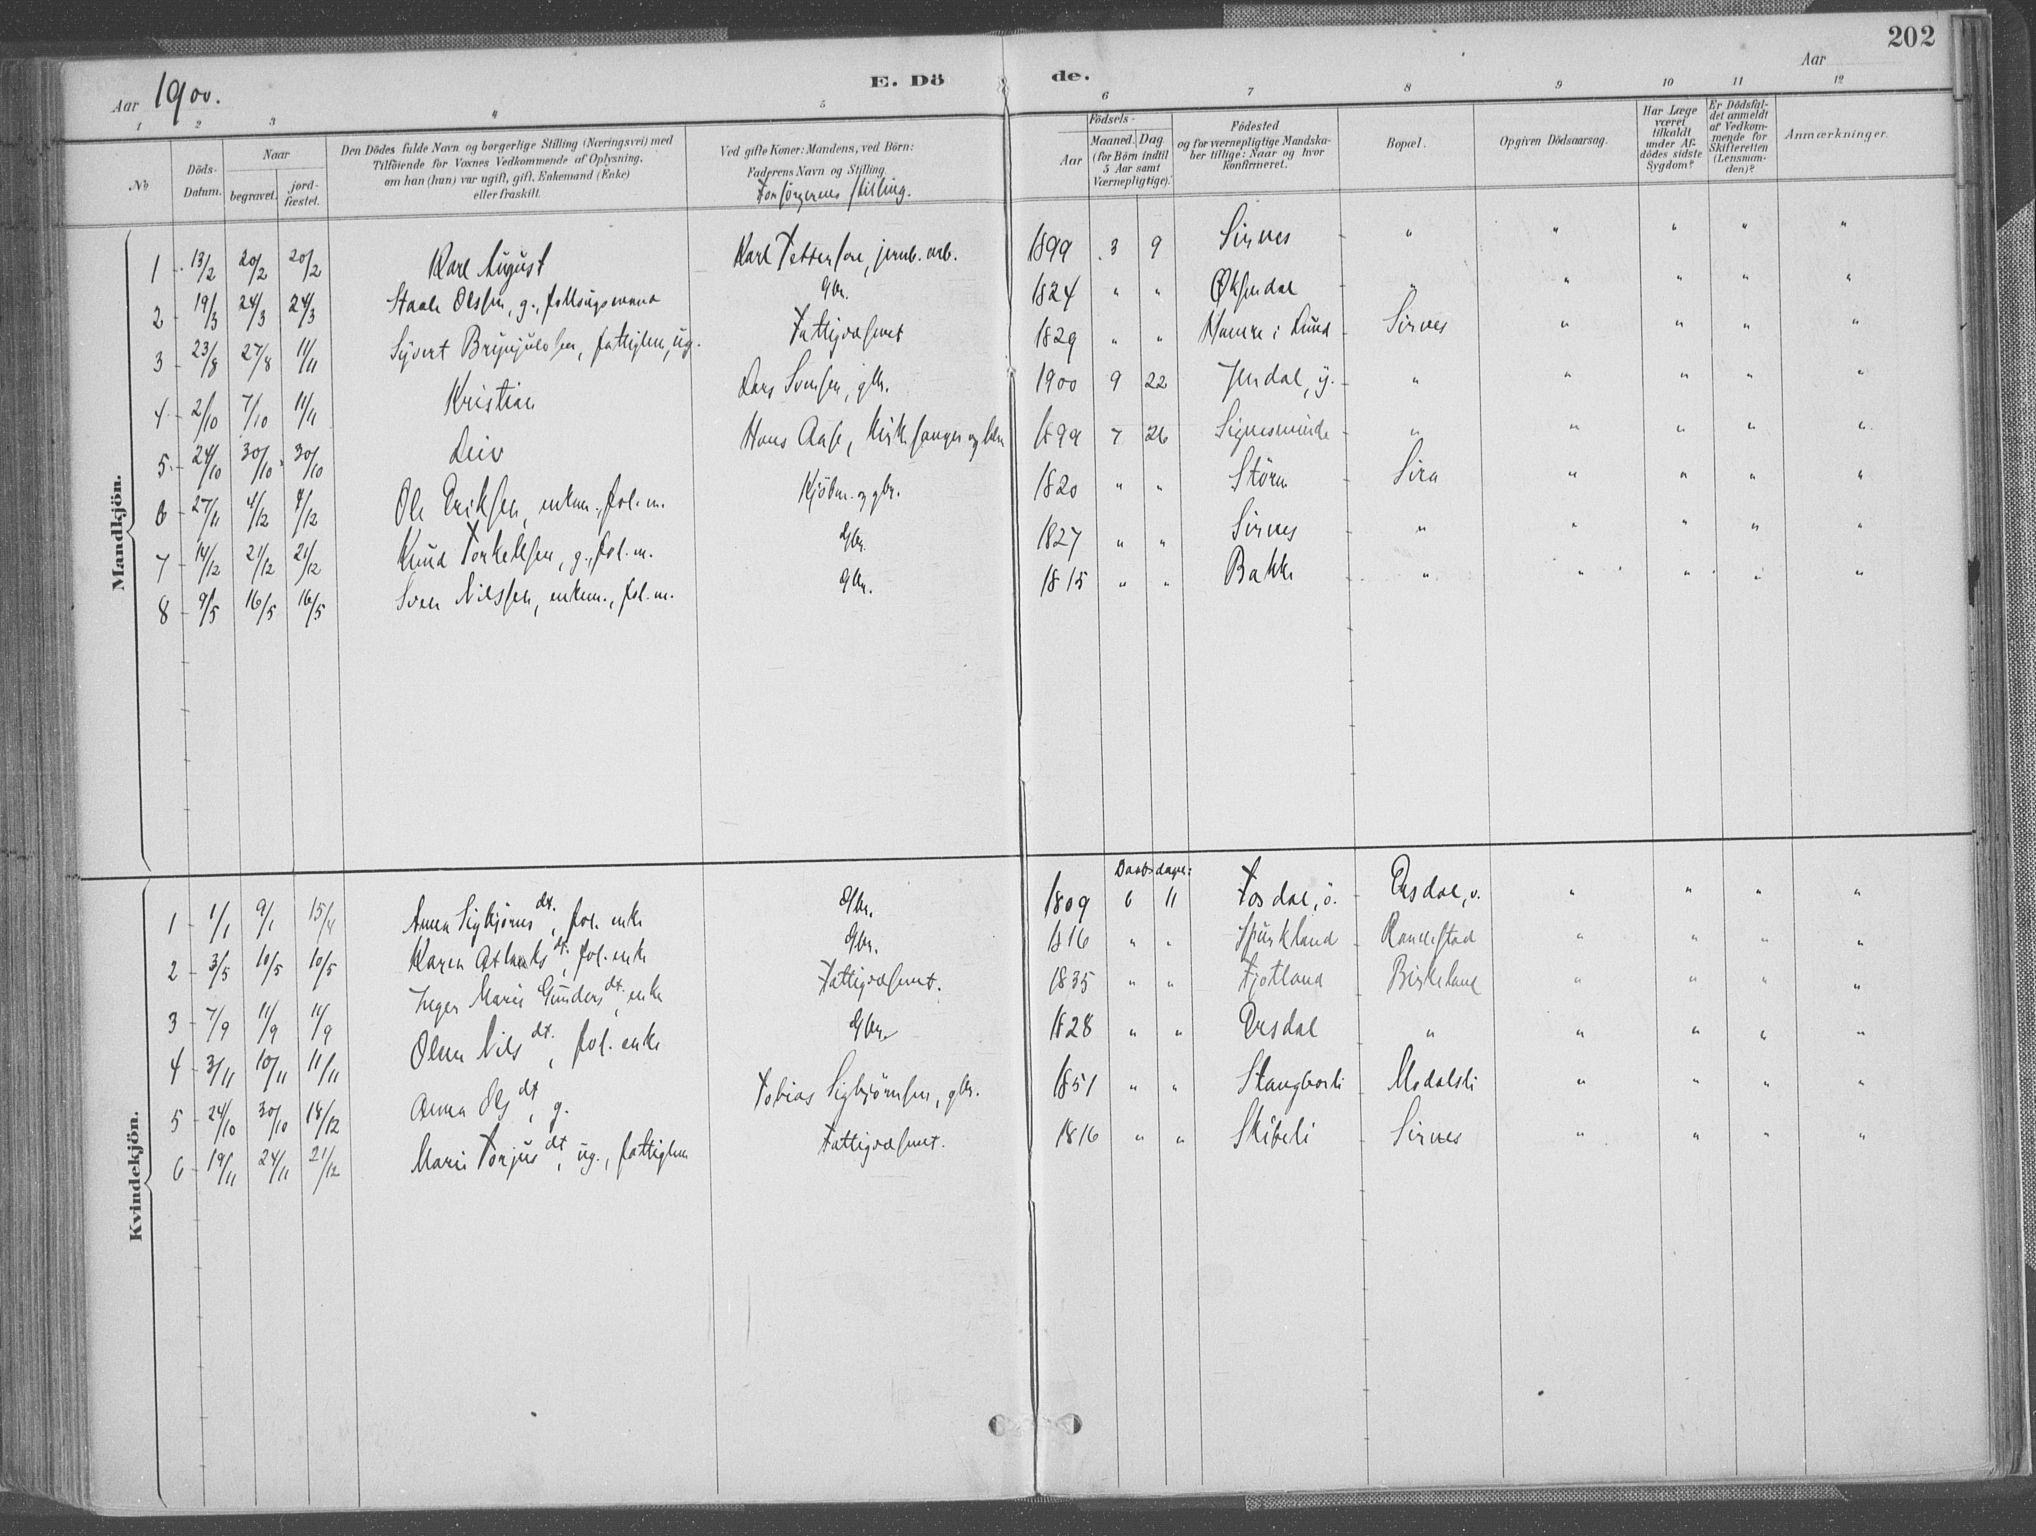 202
Aar 1900.
E. Dö de.
Aar
1 2 3 4 5 6 7 8 9 10 11 12
No
Döds-Datum.
Naar
begravet.
jord-fæstet.
Den Dödes fulde Navn og borgerlige Stilling (Næringsvei) med
Tilföiende for Voxnes Vedkommende af Oplysning,
om han (hun) var ugift, gift, Enkemand (Enke)
eller fraskilt.
Ved gifte Koner: Mandens, ved Börn:
Faderens Navn og Stilling
Forsørgerens stilling.
Födsels-
Aar
Maaned. Dag.
(for Börn indtil
5 Aar samt
Værnepligtige).
Födested
og for værnepligtige Mandska-
ber tillige: Naar og hvor
konfirmeret.
Bopæl.
Opgiven Dödsaarsag.
Har Læge
været
tilkaldt
under Af-
dödes sidste
Sygdom?
Er Dödsfal-
det anmeldt
af Vedkom-
mende for
Skifteretten
(Lensman-
den)?
Anmærkninger.
Mandkjön.
1 13/2 20/2 20/2 Karl August Karl Pettersen, jernb. arb. 1899 3 9 Sirnes " " " " "
2 19/3 24/3 24/3 Staale Olsen, g., føllougsmand Gbr. 1824 " " Øksendal " " " " "
3 23/8 27/8 11/11 Syvert Brynjulsen, fattiglem, ug. Fattigvæsenet 1829 " " Hamre i Lund Sirnes " " " "
4 2/10 7/10 11/11 Kristian Lars Svensen, gbr. 1900 9 22 Jendal, y. " " " " "
5 24/10 30/10 30/10 Leiv Hans Aase, kirkesanger og 1899 7 26 Signesminde " " " " "
6 27/11 4/12 4/12 Ole Eriksen, enkem., fol. m. Kjøbm. og gbr. 1820 " " Større Sira " " " "
7 14/12 21/12 21/12 Knud Torkelsen, g., fol. m. Gbr. 1827 " " Sirnes " " " " "
8 9/5 16/5 16/5 Sven Nilssen, enkem., fol. m. Gbr. 1815 " " Bakke " " " " "
Kvindekjön.
Daabsdage:
1 1/1 9/1 15/4 Anna Sigbjørnsdt., fol. enke Gbr. 1809 6 11 Josdal, ö. Ersdal, v. " " " "
2 3/5 10/5 10/5 Karen Atlaksdt., fol. enke Gbr. 1816 " " Spurkland Rannestad " " " "
3 7/9 11/9 11/9 Inger Marie Gundersdt., enke Fattigvæsenet. 1835 " " Fjotland Birkeland " " " "
4 3/11 10/11 11/11 Olene Nilsdt., fol. enke Gbr. 1828 " " Ersdal " " " " "
5 24/10 30/10 18/12 Anna Olsdt, g. Tobias Sigbjørnsen, gbr. 1851 " " Stangborli Modalsli " " " "
6 19/11 24/11 21/12 Marie Torjusdt, ug., fattiglem Fattigvæsenet. 1816 " " Skibeli Sirnes " " " "